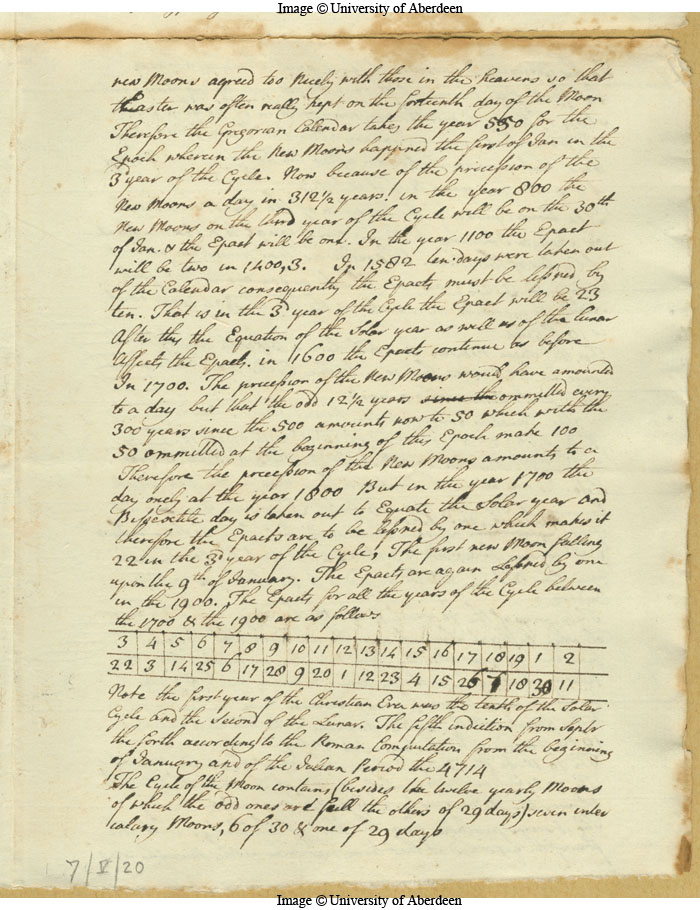 Image © University of Aberdeen
new Moons agreed too nicely with those in the heavens so that
Easter was often really kept on the forteenth day of the Moon
Therefore the Gregorian Calendar takes the year 550 for the
Epoch wherein the New Moons happned the first of Jan in the
3d year of the Cycle. Now because of the precession of the
New Moons a day in 312½ years. in the year 800 the
New Moons on the third year of the Cycle will be on the 30th
of Jan. & the Epact will be one. In the year 1100 the Epact
will be two in 1400,3. In 1582 ten days were taken out
of the Calendar consequently the Epacts must be lessned by
ten. That is in the 3d year of the Cycle the Epact will be 23
After this the Equation of the Solar year as well as of the lunar
Affects the Epact. in 1600 the Epacts continue as before
In 1700. The precession of the New Moons would have amounted
to a day but that the odd 12½ years since the ommitted every
300 years since the 500 amounts now to 50 which with the
50 ommitted at the beginning of this Epoch make 100
Therefore the precession of the New Moons amounts to a
day onely at the year 1800 But in the year 1700 the
Bissextile day is taken out to Equate the Solar year and
therefore the Epacts are to be lessned by one which makes it
22 in the 3d year of the Cycle; The first new Moon falling
upon the 9th of January. The Epacts are again Lessned by one
in the 1900. The Epacts for all the years of the Cycle between
the 1700 & the 1900 are as follows
3 4 5 6 7 8 9 10 11 12 13 14 15 16 17 18 19 1 2
22 3 14 25 6 17 28 9 20 1 12 23 4 15 26 7 18 30 11
Note the first year of the Christian Era was the tenth of the Solar
Cycle and the second of the Lunar. The fifth indiction from Septr
the forth according to the Roman Computation from the beginning
of January and of the Julian Period the 4714
The Cycle of the Moon contains (besides the twelve yearly Moons
of which the odd ones are full the others of 29 days) seven inter
calary Moons, 6 of 30 & one of 29 days
7/V/20
Image © University of Aberdeen